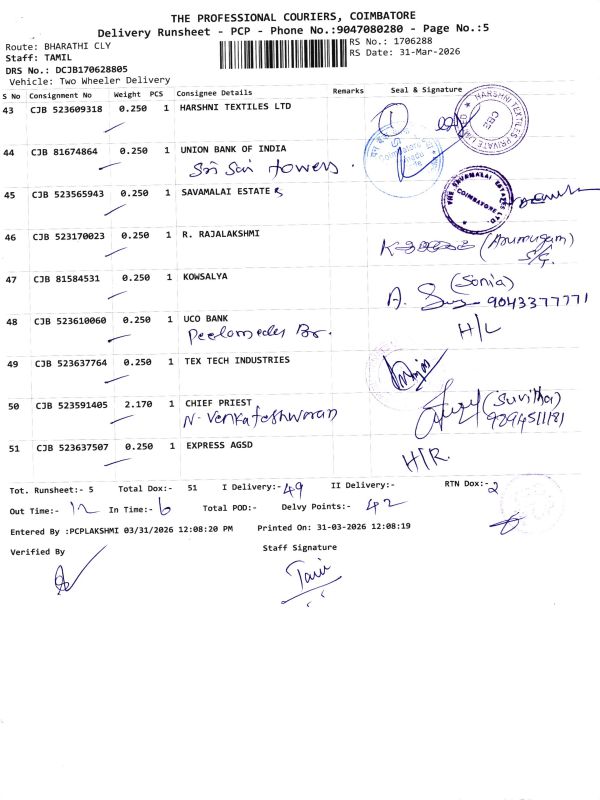 THE PROFESSIONAL COURIERS, COIMBATORE
Delivery Runsheet - PCP - Phone No.:9047080280 - Page No.:5
Route: BHARATHI CLY RS No.: 1706288
Staff: TAMIL RS Date: 31-Mar-2026
DRS No.: DCJB170628805
Vehicle: Two Wheeler Delivery
S No Consignment No Weight PCS Consignee Details Remarks Seal & Signature
43 CJB 523609318 0.250 1 HARSHNI TEXTILES LTD
HARSHNI TEXTILES PRIVATE LIMITED CBE
44 CJB 81674864 0.250 1 UNION BANK OF INDIA
Sri Sai towers.
45 CJB 523565943 0.250 1 SAVAMALAI ESTATE
THE SAVAMALAI ESTATES LTD. COIMBATORE
46 CJB 523170023 0.250 1 R. RAJALAKSHMI
(Arumugam)
S/G.
47 CJB 81584531 0.250 1 KOWSALYA
(Sonia)
A. 9043377771
48 CJB 523610060 0.250 1 UCO BANK
Peelamedu Br. H/L
49 CJB 523637764 0.250 1 TEX TECH INDUSTRIES
50 CJB 523591405 2.170 1 CHIEF PRIEST
N. Venkateshwaran (Suvitha)
9294511181
51 CJB 523637507 0.250 1 EXPRESS AGSD
H/R.
Tot. Runsheet:- 5 Total Dox:- 51 I Delivery:- 49 II Delivery:- RTN Dox:- 2
Out Time:- 12 In Time:- 6 Total POD:- Delvy Points:- 42
Entered By :PCPLAKSHMI 03/31/2026 12:08:20 PM Printed On: 31-03-2026 12:08:19
Verified By Staff Signature
Tamil